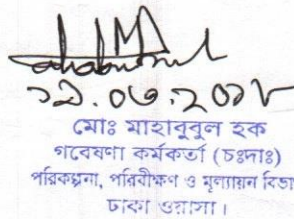 ১৯.০৬.২০১৮
মোঃ মাহাবুবুল হক
গবেষণা কর্মকর্তা (চঃদাঃ)
পরিকল্পনা, পরিবীক্ষণ ও মূল্যায়ন বিভা
ঢাকা ওয়াসা।